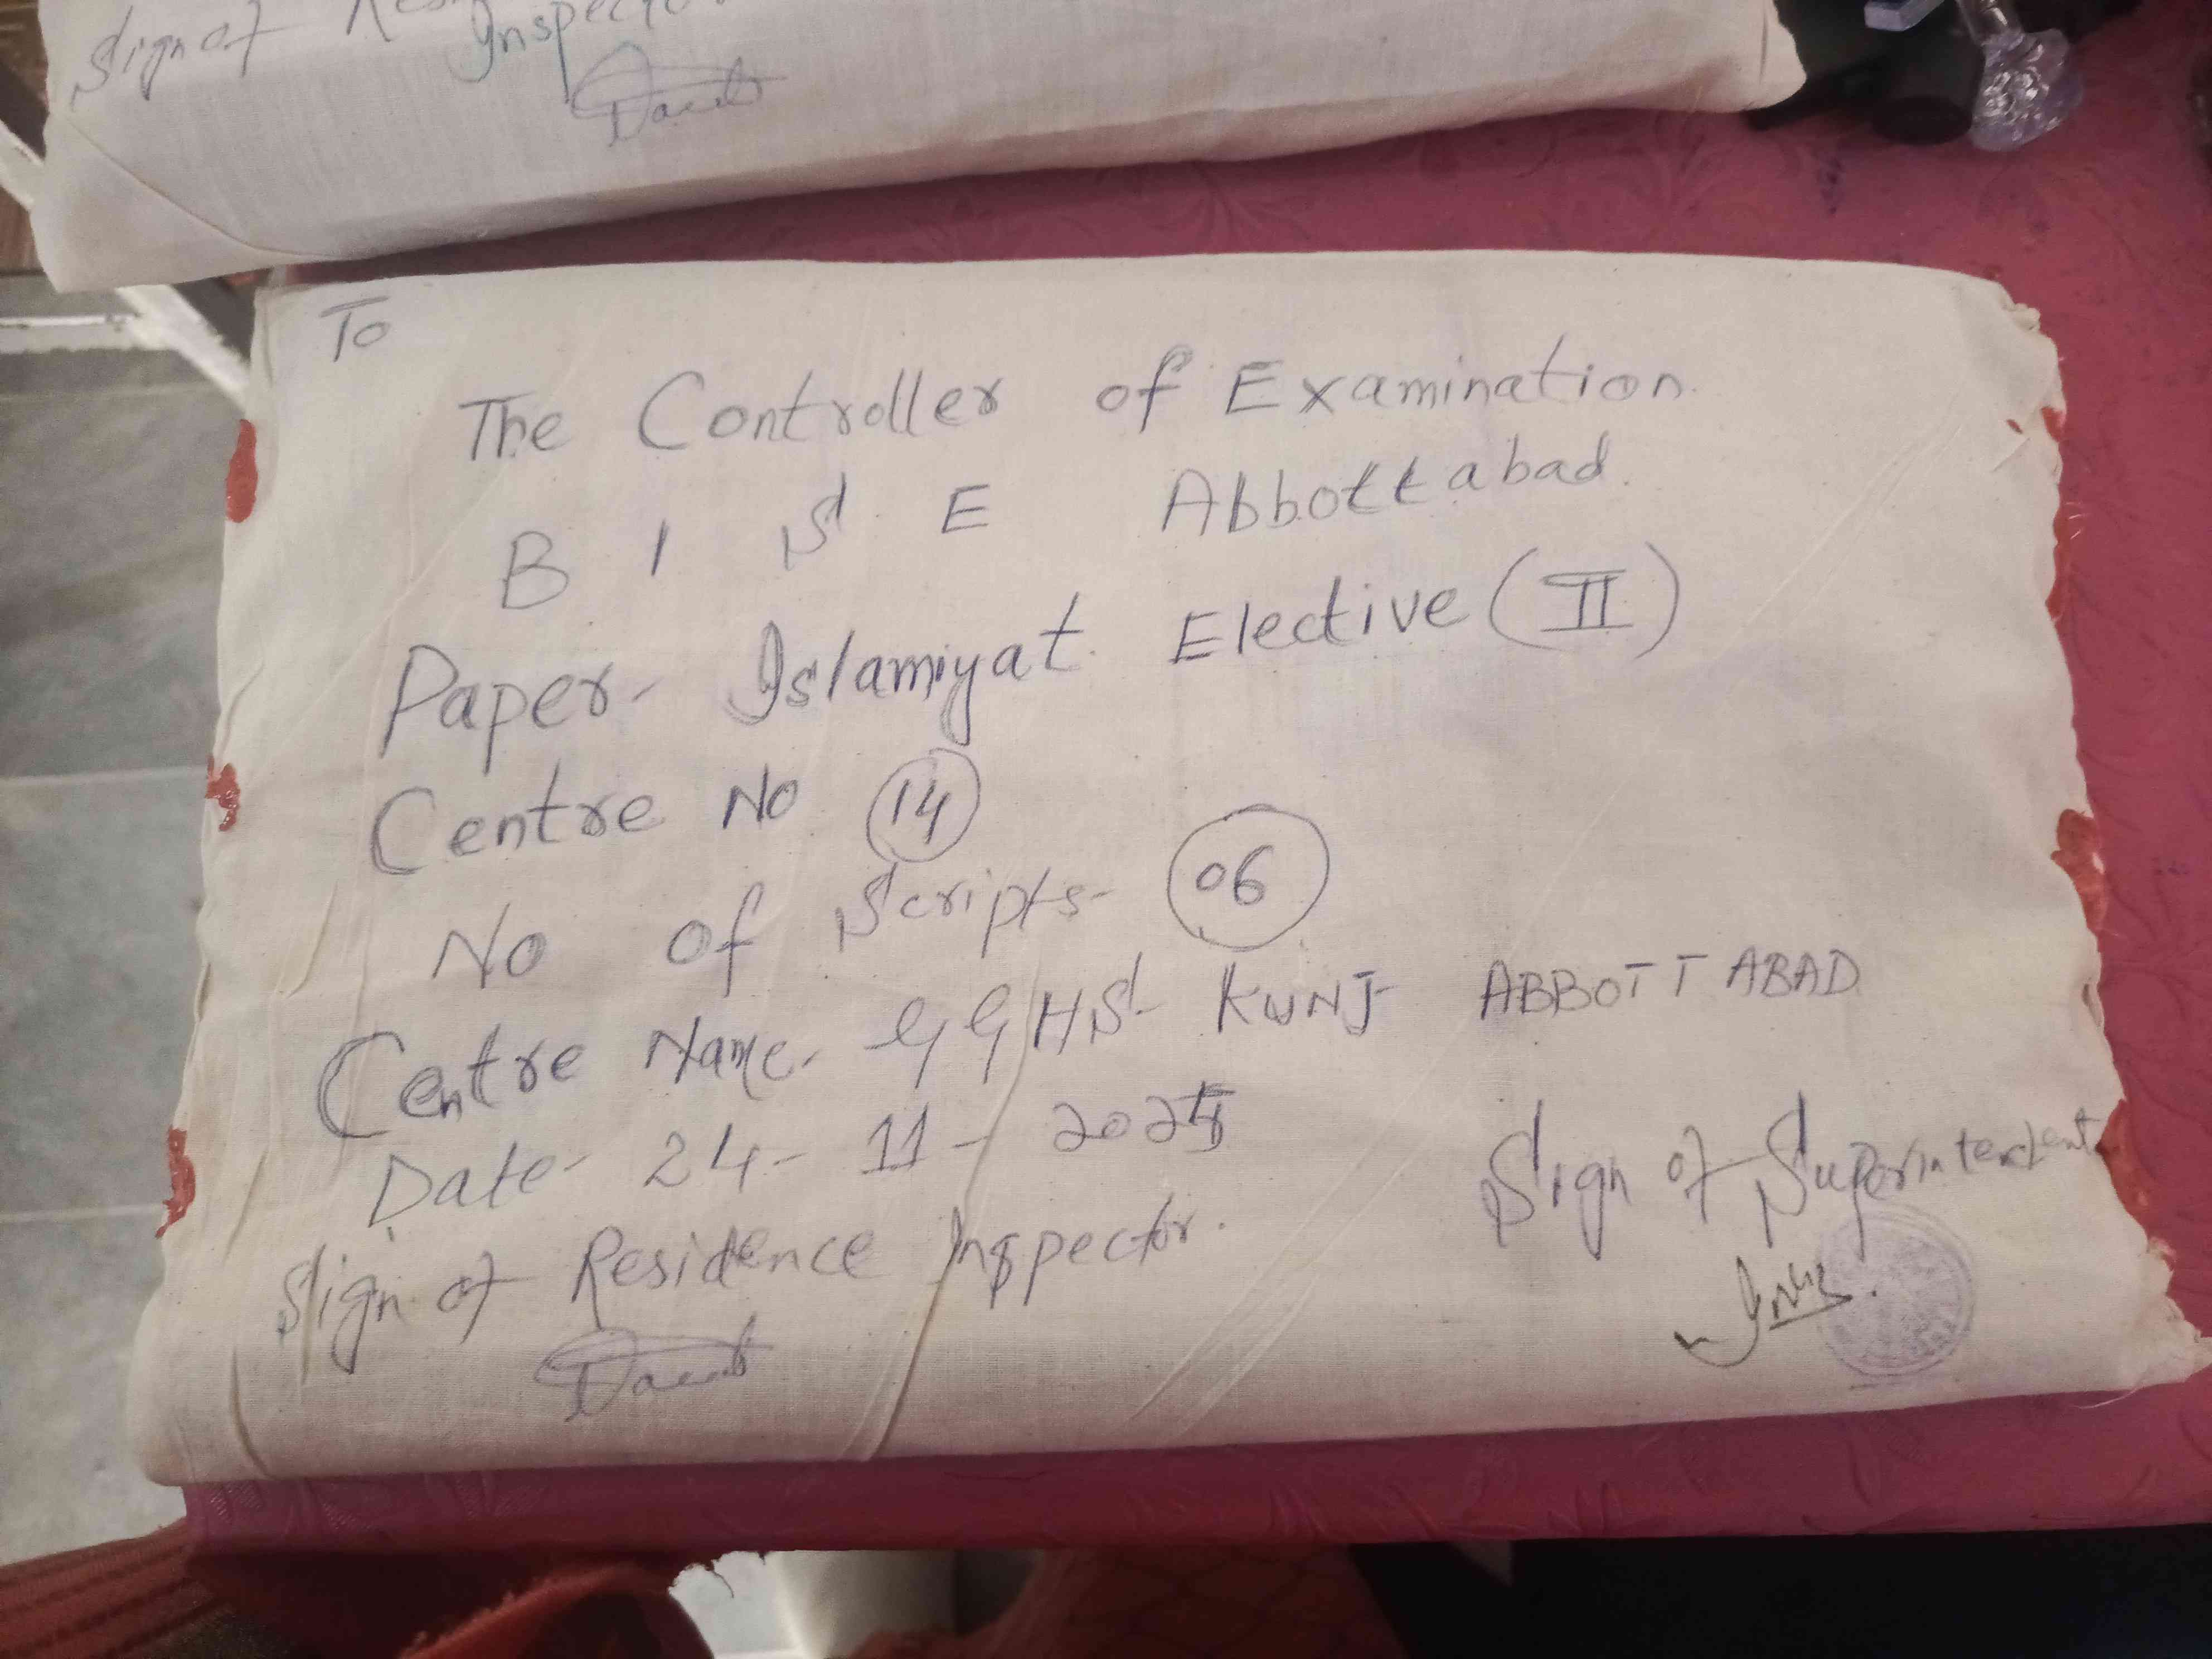 Sign of
Inspector
To
The Controller of Examination.
B I S E Abbottabad.
Paper- Islamiyat Elective (II)
Centre No 14
No of Scripts- 06
Centre Name- GGHS- KUNJ ABBOTTABAD
Date- 24- 11- 2025
Sign of Superintendent
Sign of Residence Inspector.